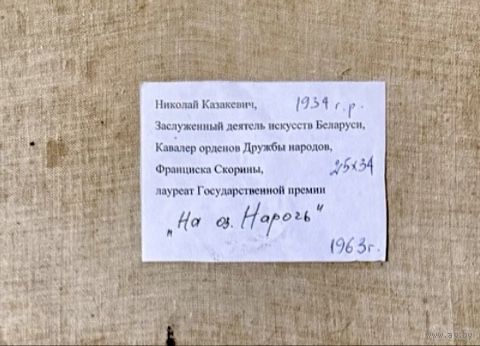 Николай Казакевич, 1934 г.р.
Заслуженный деятель искусств Беларуси,
Кавалер орденов Дружбы народов,
Франциска Скорины, 25х34
лауреат Государственной премии
„На оз. Нарочь"
1963г.